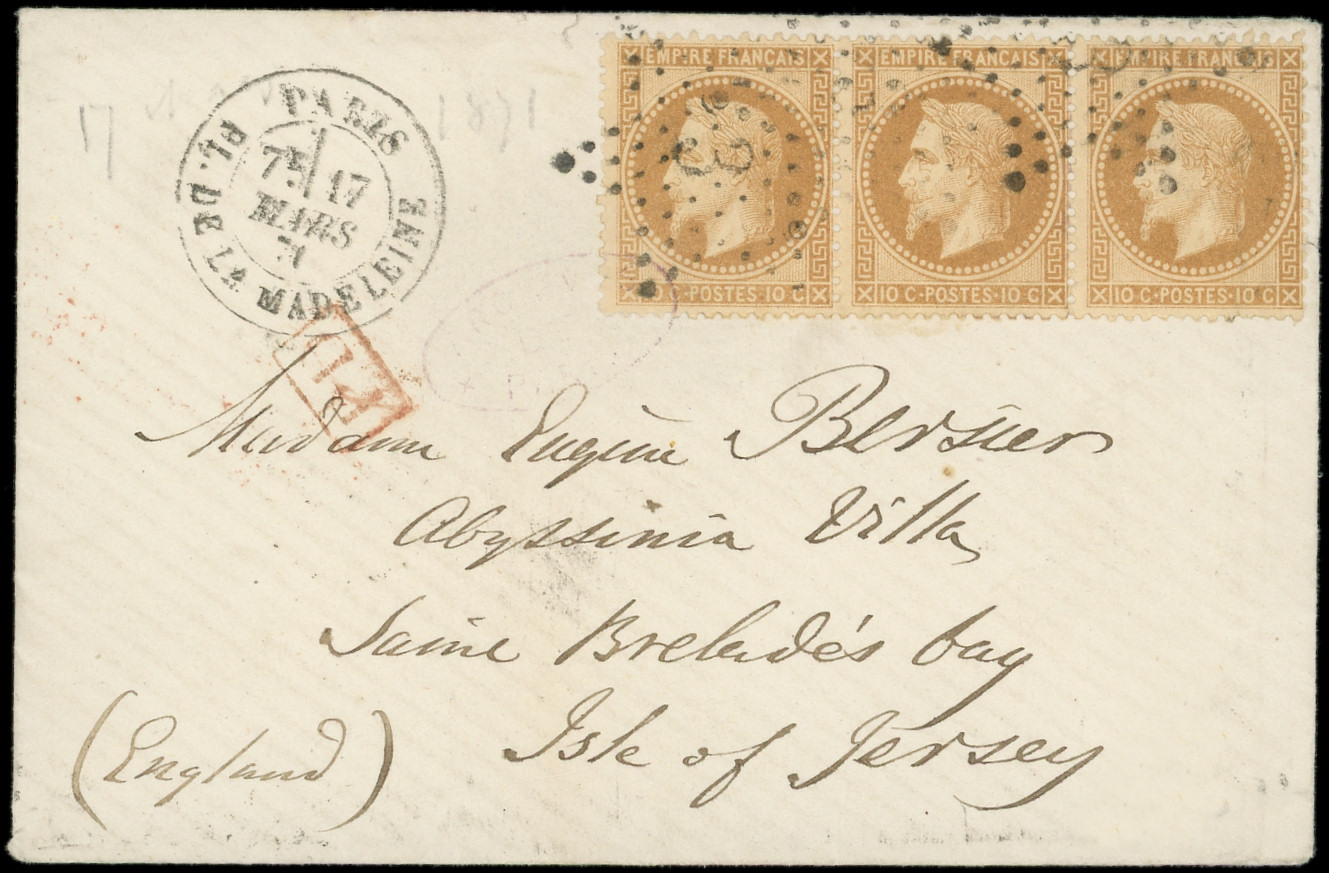 EMPIRE FRANCAIS EMPIRE FRANCAIS EMPIRE FRANCAIS
10 C·POSTES·10 C 10 C·POSTES·10 C 10 C·POSTES·10 C
17 1871
PARIS
7E 17
MARS
71
PL. DE LA MADELEINE
3 3
PD
Madame Eugène Bersier
Abyssinia Villa
Saint Brelade's bay
Isle of Jersey
(England)